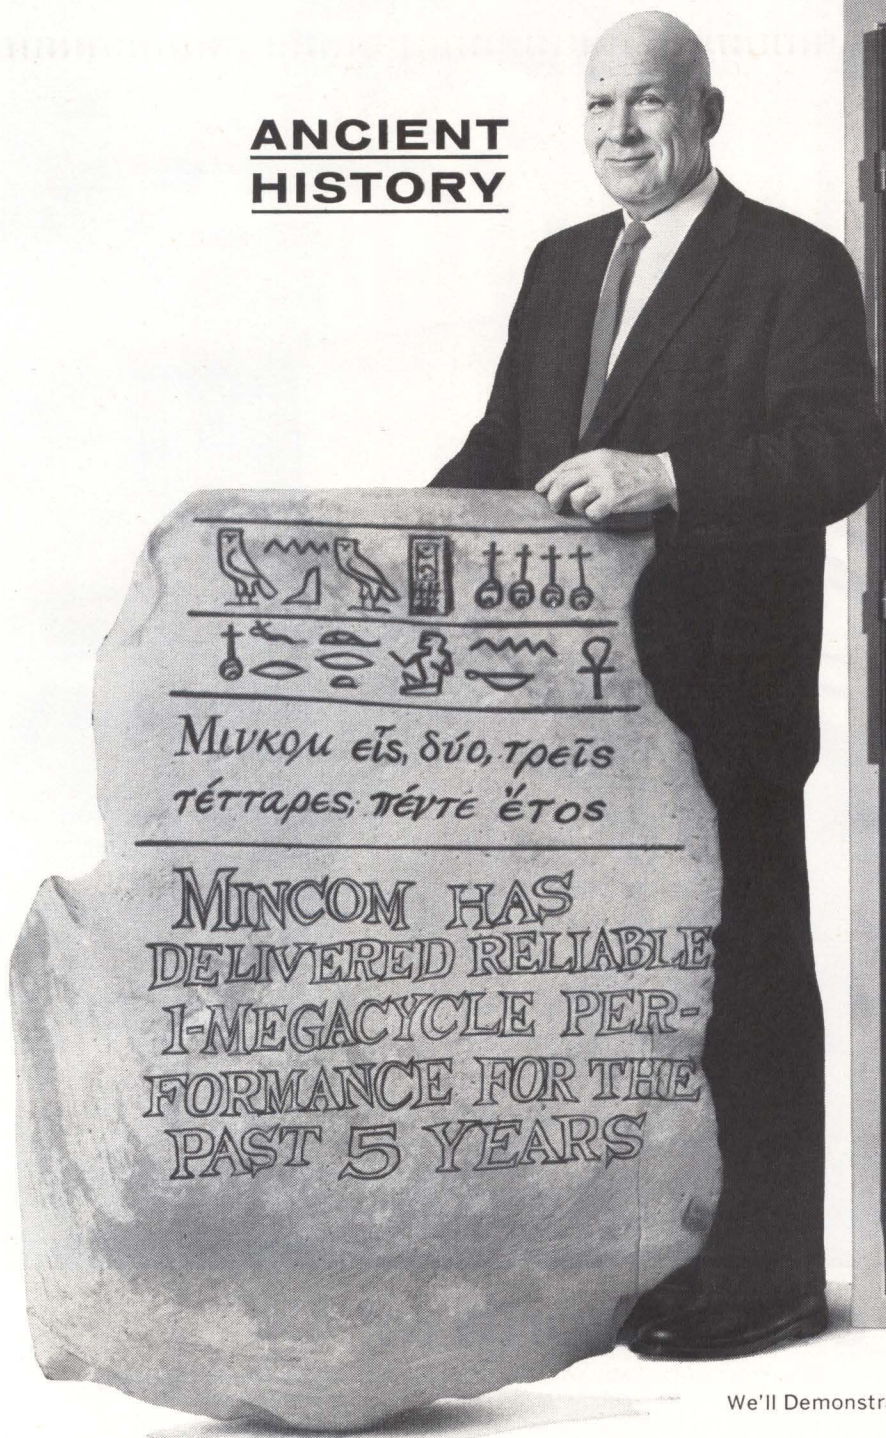 ANCIENT
HISTORY
Μινκομ εἷς, δύο, τρεῖς
τέτταρες, πέντε ἔτος
MINCOM HAS
DELIVERED RELIABLE
1-MEGACYCLE PER-
FORMANCE FOR THE
PAST 5 YEARS
We'll Demonstra